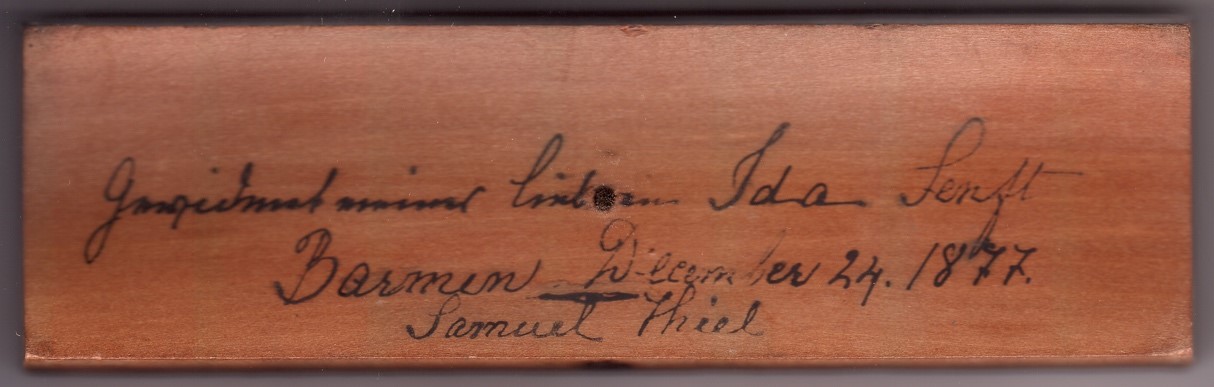 Gewidmet meiner lieben Ida Senft
Barmen December 24. 1877.
Samuel Thiel